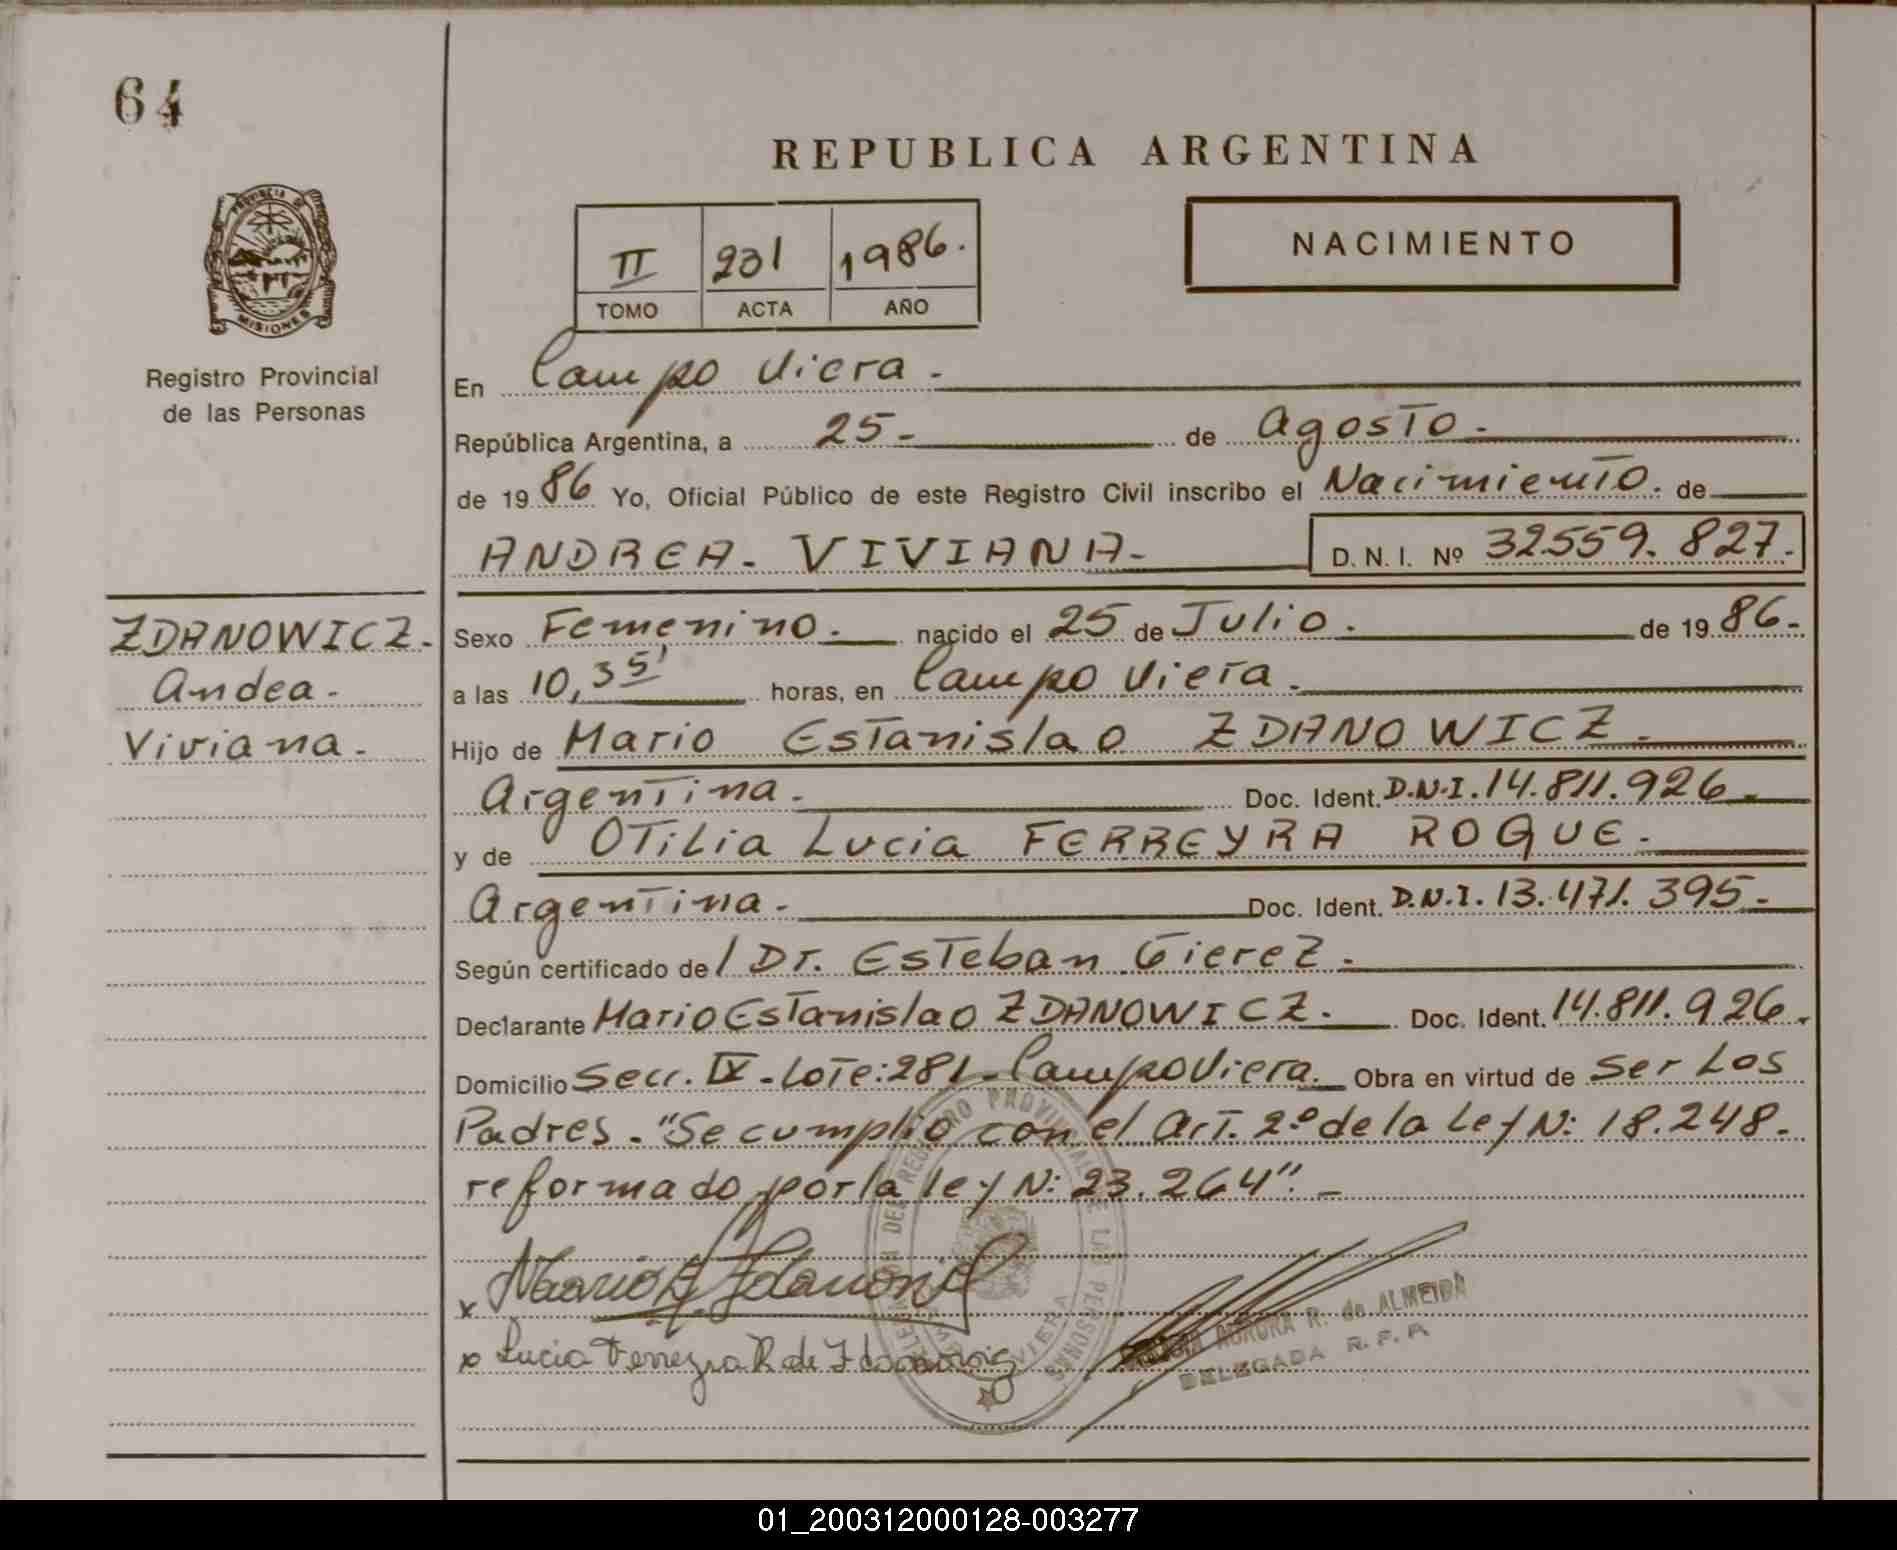 64
REPUBLICA ARGENTINA
PROVINCIA DE
MISIONES
Registro Provincial
de las Personas
II 231 1986.
TOMO ACTA AÑO
NACIMIENTO
En Campo Viera.
República Argentina, a 25- de Agosto.
de 19 86 Yo, Oficial Público de este Registro Civil inscribo el Nacimiento. de
ANDREA- VIVIANA- D. N. I. Nº 32559.827.
ZDANOWICZ.
Andea.
Viviana.
Sexo Femenino. nacido el 25 de Julio. de 19 86.
a las 10,35' horas, en Campo Viera.
Hijo de Mario Estanislao ZDANOWICZ.
Argentina. Doc. Ident. D.N.I. 14.811.926.
y de OTiLia Lucia FERREYRA ROQUE.
Argentina. Doc. Ident. D.N.I. 13.471.395-
Según certificado de / Dr. Esteban Gierez.
Declarante Mario Estanislao ZDANOWICZ. Doc. Ident. 14.811.926.
Domicilio Secc. IX - Lote: 281 - Campo Viera. Obra en virtud de ser Los
Padres. "Se cumplio con el Art. 2º de la Ley N: 18.248.
reformado por la ley N: 23.264". -
x Mario E. Zdanowicz
x Lucia Ferreyra R de Zdanowicz
DEL REGISTRO PROVINCIAL DE LAS PERSONAS
VIERA
AURORA R. de ALMEIDA
DELEGADA R. P. P.
01_200312000128-003277